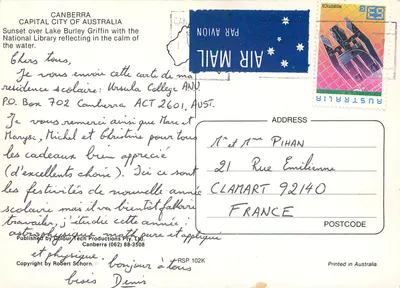 CANBERRA
CAPITAL CITY OF AUSTRALIA
Sunset over Lake Burley Griffin with the
National Library reflecting in the calm of
the water.
Chers tous,
Je vous envoie cette carte de ma
residence scolaire: Ursula College ANU
P.O. Box 702 Canberra ACT 2601, AUST.
Je vous remercie ainsi que Marc et
Maryse, Michel et Christine pour tous
les cadeaux bien apprecié
(d'excellents choix). Ici ce sont
les festivités de nouvelle année
scolaire mais il va bientôt falloir
travailler, j'étudie cette année:
astrophysique, math pure et appliqué
et physique.
bonjour à tous
bises Denis
Published by Colour Tech Productions Pty. Ltd.
Canberra (062) 88-3508
Copyright of Robert Schorn.
RSP 102K
AIR MAIL
PAR AVION
53c
AUSTRALIA
ADDRESS
Mr et Mme PIHAN
21 Rue Emilienne
CLAMART 92140
FRANCE
POSTCODE
Printed in Australia